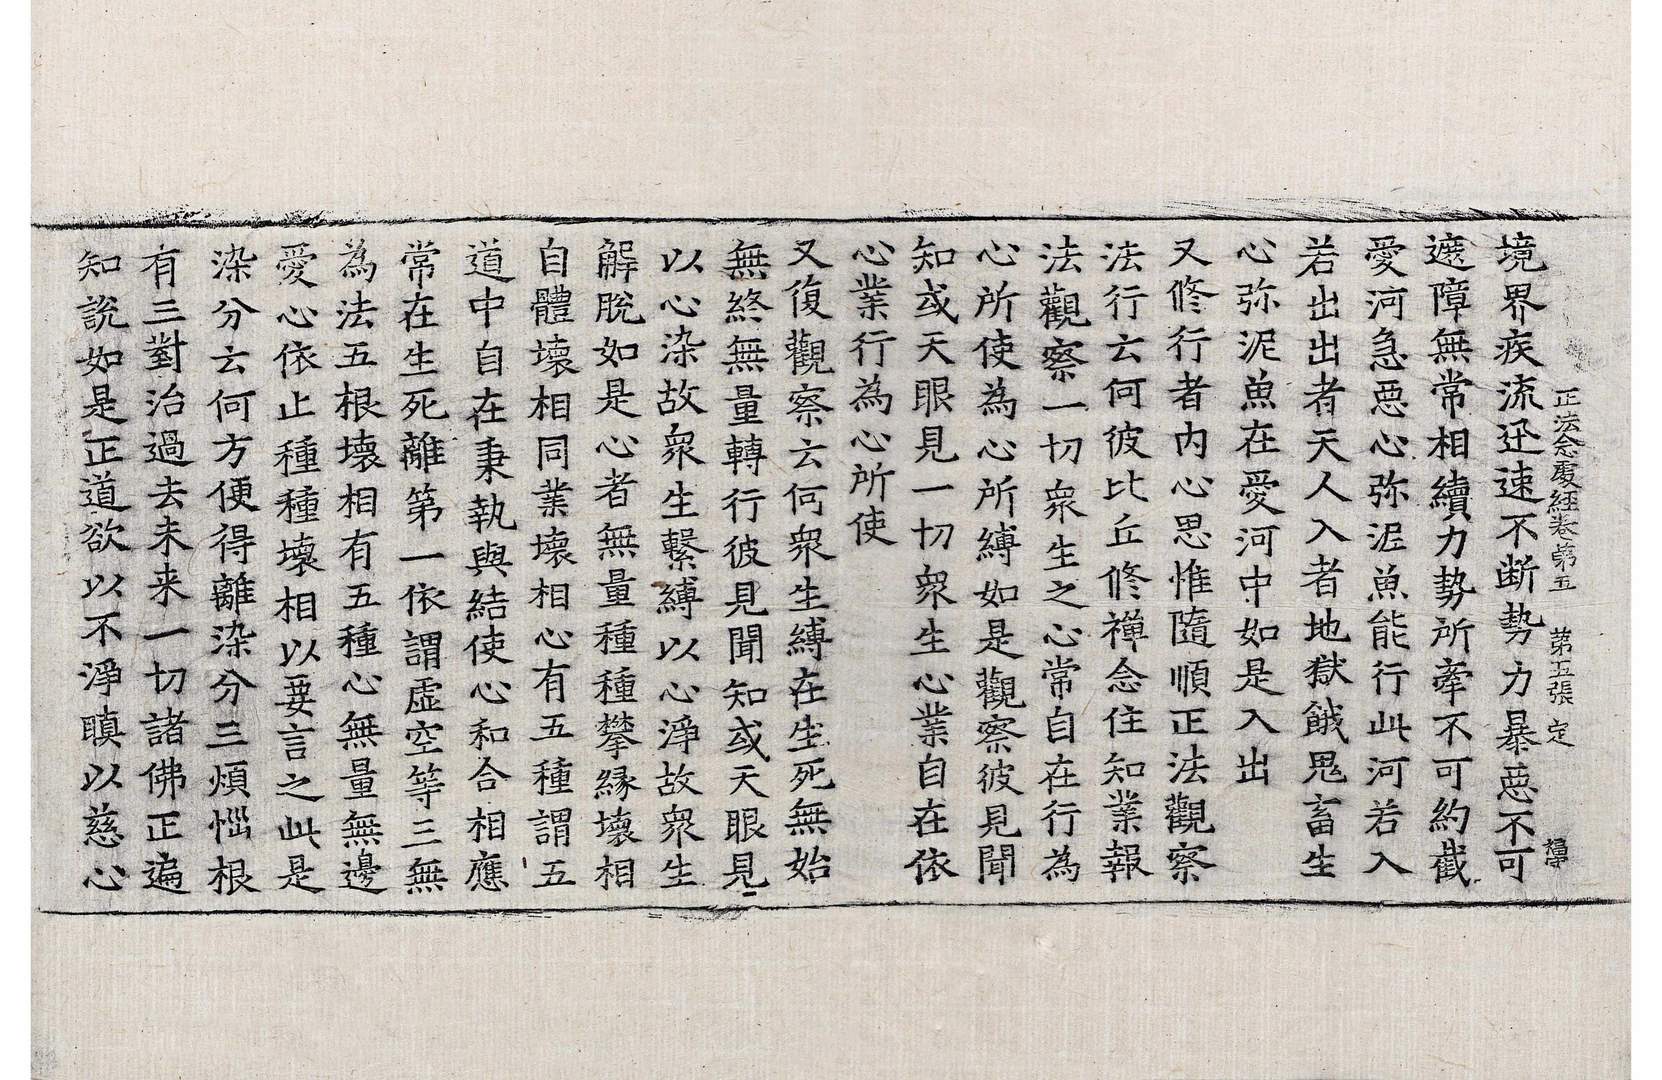 正法念處經卷第五 第五張 定
境界疾流迅速不断勢力暴惡不可
遮障無常相續力勢所牽不可約截
愛河急惡心弥泥魚能行此河若入
若出出者天人入者地獄餓鬼畜生
心弥泥魚在愛河中如是入出
又修行者内心思惟隨順正法觀察
法行云何彼比丘修禪念住知業報
法觀察一切衆生之心常自在行為
心所使為心所縛如是觀察彼見聞
知或天眼見一切衆生心業自在依
心業行為心所使
又復觀察云何衆生縛在生死無始
無終無量轉行彼見聞知或天眼見
以心染故衆生繫縛以心淨故衆生
解脫如是心者無量種種攀縁壞相
自體壞相同業壞相心有五種謂五
道中自在秉執與結使心和合相應
常在生死離第一依謂虛空等三無
為法五根壞相有五種心無量無邊
愛心依止種種壞相以要言之此是
染分云何方便得離染分三煩惱根
有三對治過去未来一切諸佛正遍
知說如是正道欲以不淨瞋以慈心